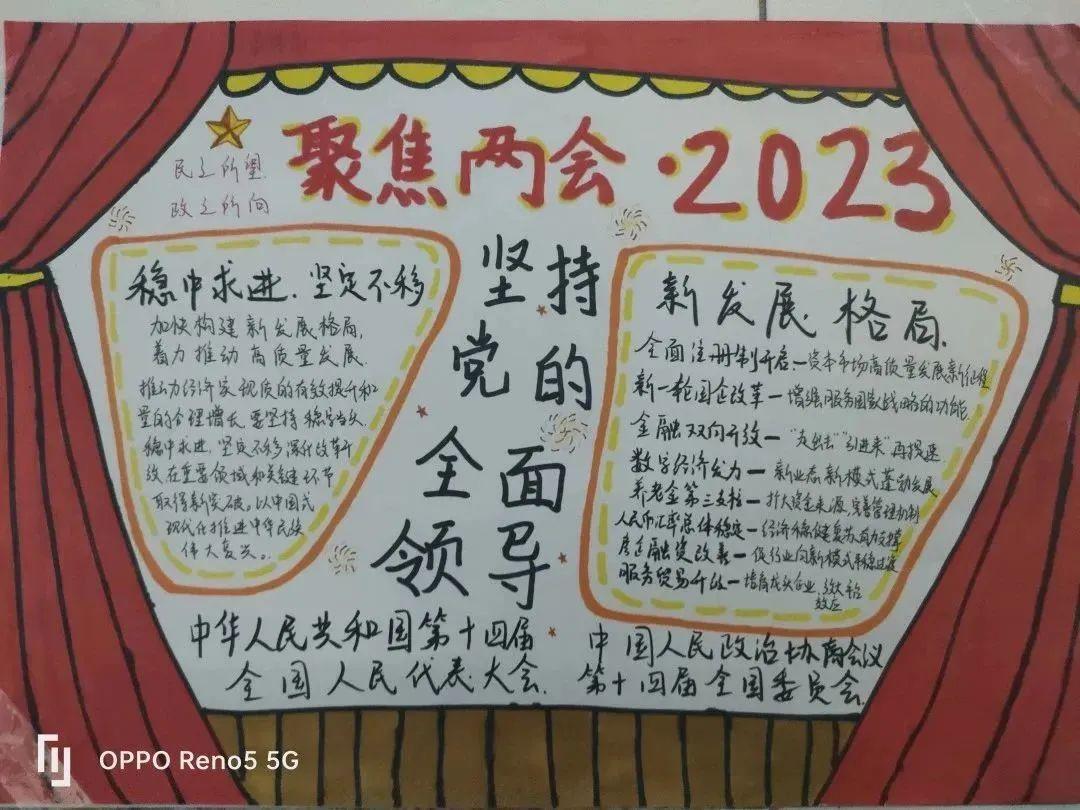 聚焦两会·2023
民之所望
政之所向
稳中求进、坚定不移
加快构建新发展格局,
着力推动高质量发展.
推动经济实现质的有效提升和
量的合理增长 要坚持稳字当头
稳中求进,坚定不移深化改革开
放,在重要领域和关键环节
取得新突破。以中国式
现代化推进中华民族
伟大复兴。
坚持
党的
全面
领导
新发展格局.
全面注册制开启—资本市场高质量发展新征程
新一轮国企改革—增强服务国家战略的功能.
金融双向开放—“走出去”“引进来”再提速
数字经济发力—新业态新模式蓬勃发展
养老金第三支柱—扩大资金来源,完善管理机制
人民币汇率总体稳定—经济稳健复苏有力支撑
房企融资改善—促行业向新模式平稳过渡
服务贸易开放—培育龙头企业,
效应
中华人民共和国第十四届
全国人民代表大会.
中国人民政治协商会议
第十四届全国委员会.
OPPO Reno5 5G